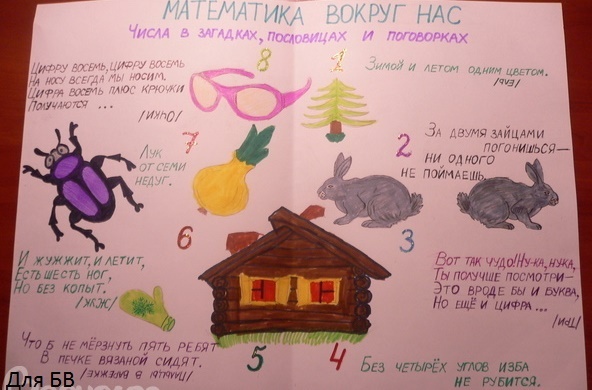 МАТЕМАТИКА ВОКРУГ НАС
ЧИСЛА В ЗАГАДКАХ, ПОСЛОВИЦАХ И ПОГОВОРКАХ
ЦИФРУ ВОСЕМЬ, ЦИФРУ ВОСЕМЬ
НА НОСУ ВСЕГДА МЫ НОСИМ.
ЦИФРА ВОСЕМЬ ПЛЮС КРЮЧКИ
ПОЛУЧАЮТСЯ ...
/ОЧКИ/
8
1
ЗИМОЙ И ЛЕТОМ ОДНИМ ЦВЕТОМ.
/ЕЛЬ/
7
ЛУК
ОТ СЕМИ
НЕДУГ.
2
ЗА ДВУМЯ ЗАЙЦАМИ
ПОГОНИШЬСЯ—
НИ ОДНОГО
НЕ ПОЙМАЕШЬ.
6
И ЖУЖЖИТ, И ЛЕТИТ,
ЕСТЬ ШЕСТЬ НОГ,
НО БЕЗ КОПЫТ.
/ЖУК/
3
ВОТ ТАК ЧУДО! НУ-КА, НУКА,
ТЫ ПОЛУЧШЕ ПОСМОТРИ—
ЭТО ВРОДЕ БЫ И БУКВА,
НО ЕЩЁ И ЦИФРА ...
/ТРИ/
ЧТО Б НЕ МЁРЗНУТЬ ПЯТЬ РЕБЯТ
В ПЕЧКЕ ВЯЗАНОЙ СИДЯТ.
/ПАЛЬЦЫ В ВАРЕЖКЕ/
5
4
БЕЗ ЧЕТЫРЁХ УГЛОВ ИЗБА
НЕ РУБИТСЯ.
Для БВ